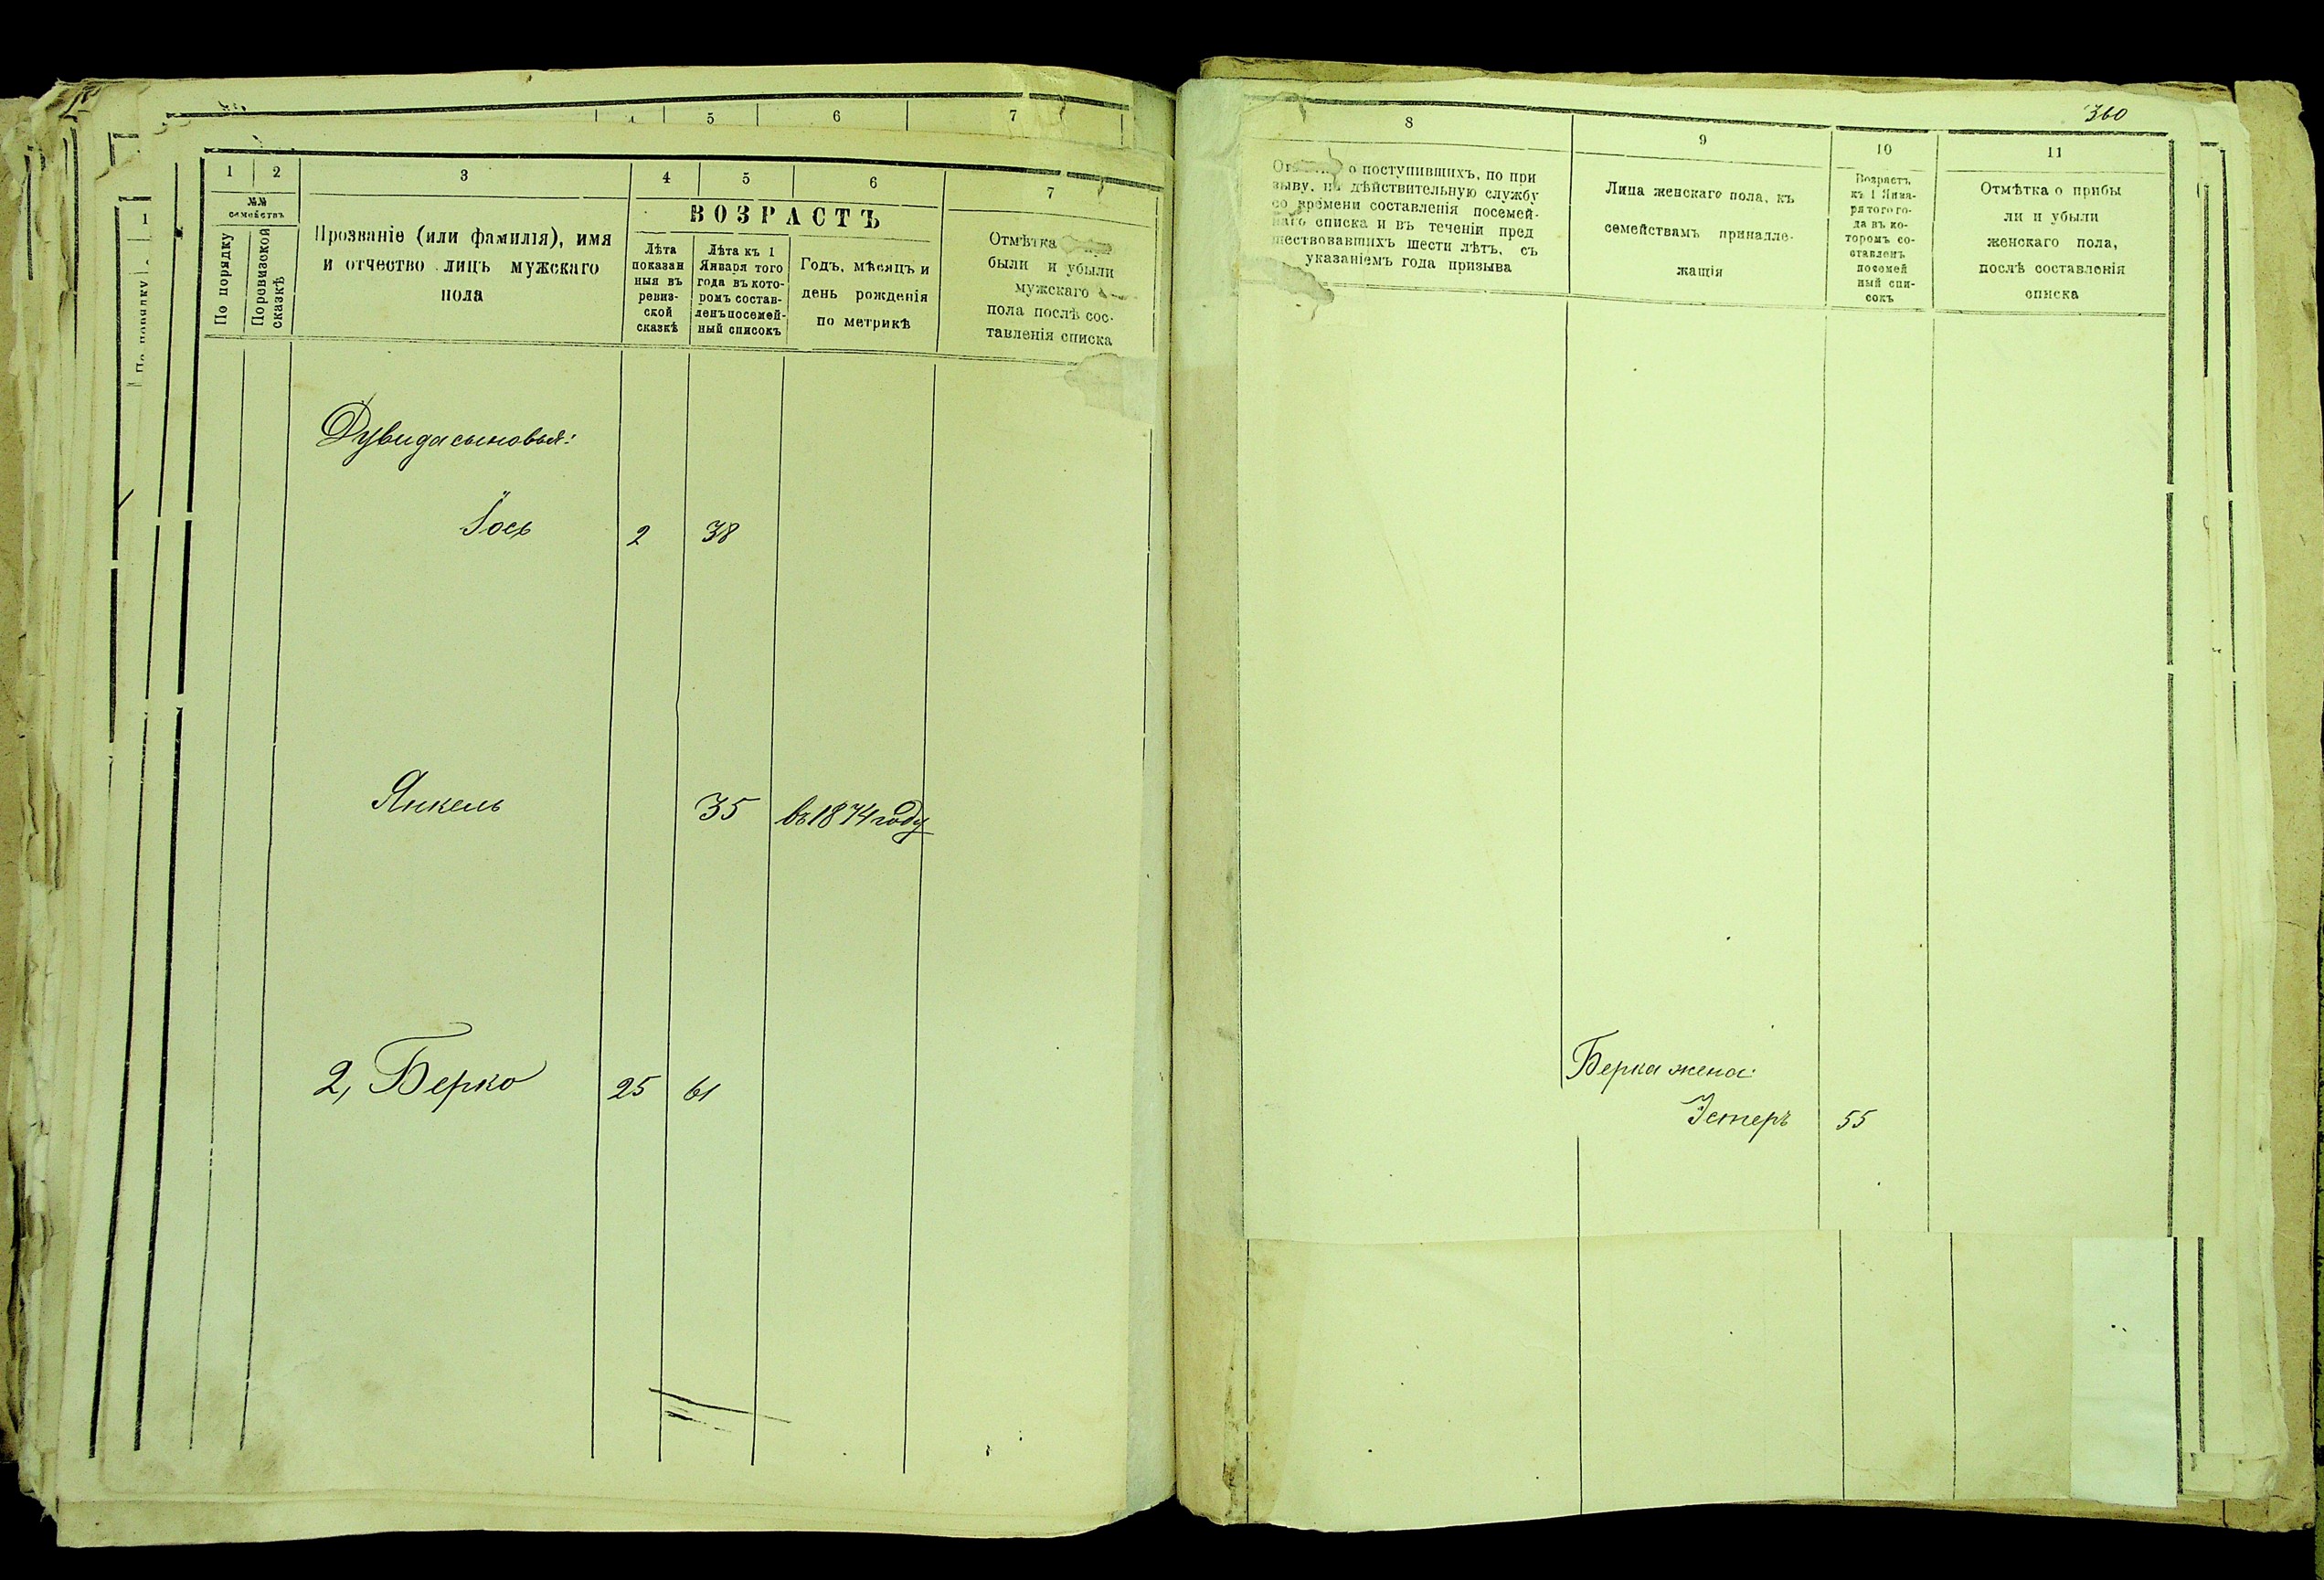 5 6 7
1 2 3 4 5 6 7
№№
семействъ
По порядку
По ревизской
сказкѣ
Прозваніе (или фамилія), имя
и отчество лицъ мужскаго
пола
ВОЗРАСТЪ
Лѣта
показан
ныя въ
ревиз-
ской
сказкѣ
Лѣта къ 1
Января того
года въ кото-
ромъ состав-
ленъ посемей-
ный списокъ
Годъ, мѣсяцъ и
день рожденія
по метрикѣ
Отмѣтка
были и убыли
мужскаго
пола послѣ сос-
тавленія списка
Дувида сыновья:
Іось 2 38
Янкель 35 въ 1874 году
2, Берко 25 61
360
8 9 10 11
о поступившихъ, по при
зыву, на дѣйствительную службу
со времени составленія посемей-
наго списка и въ теченіи пред
шествовавшихъ шести лѣтъ, съ
указаніемъ года призыва
Лица женскаго пола, къ
семействамъ принадле-
жащія
Возрастъ
къ 1 Янва-
ря того го-
да въ ко-
торомъ со-
ставленъ
посемей
ный спи-
сокъ
Отмѣтка о прибы
ли и убыли
женскаго пола,
послѣ составленія
списка
Берка жена:
Эстеръ 55